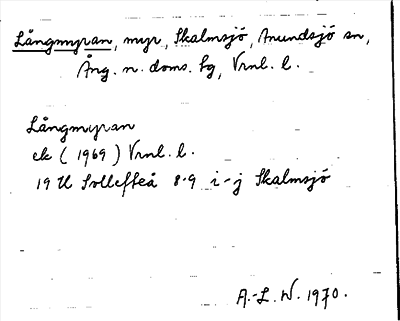 Långmyran, myr, Skalmsjö, Anundsjö sn,
Ång. n. doms. hg, Vrnl. l.
Långmyran
ek (1969) Vrnl. l.
19 H Sollefteå 8-9 i-j Skalmsjö
A.-L. W. 1970.